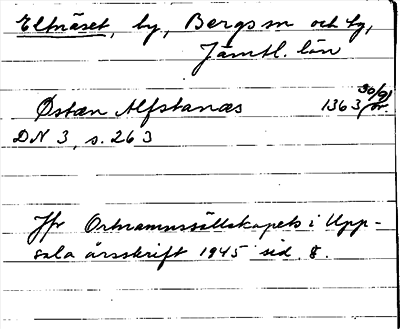 Elfnäset, by, Bergs sn och tg,
Jämtl. län
Østæn Alfstanæs 1363 30/9 or.
DN 3, s. 263
Jfr Ortnamnssällskapets i Upp-
sala årsskrift 1945 sid. 8.